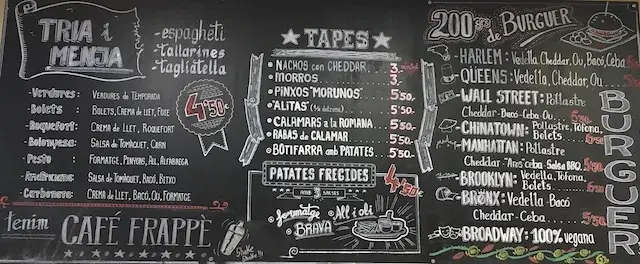 TRIA i
MENJA
-espagheti
-tallarines
-tagliatella
4'50€
-Verdures: Verdures de Temporada
-Bolets: Bolets, Crema de llet, Foie
-Roquefort: Crema de llet, Roquefort
-Bolonyesa: Salsa de Tomàquet, Carn
-Pesto: Formatge, Pinyons, All, Alfabrega
-Amatriciana: Salsa de Tomàquet, Bacó, Bitxo
-Carbonara: Crema de llet, Bacó, Ou, Formatge
tenim CAFÉ FRAPPÈ
TAPES
NACHOS con CHEDDAR...3
MORROS...3
PINXOS "MORUNOS" 5'50.
"ALITAS" 5'50.
CALAMARS a la ROMANA. 5'50
RABAS de CALAMAR 5'50.
BOTIFARRA amb PATATES 5'50
PATATES FREGIDES 4'50€
AMB 3 SALSES
formatge
All i oli
BRAVA
200grs de BURGUER
HARLEM: Vedella, Cheddar, Ou, Bacó, Ceba
QUEENS: Vedella, Cheddar, Ou
WALL STREET: Pollastre
Cheddar-Bacó-Ceba-Ou
CHINATOWN: Pollastre, Tòfona, Bolets
MANHATTAN: Pollastre
Cheddar-Anís ceba-Salsa BBQ
BROOKLYN: Vedella, Tòfona, Bolets
BRONX: Vedella-Bacó
Cheddar-Ceba
BROADWAY: 100% vegana
BURGUER